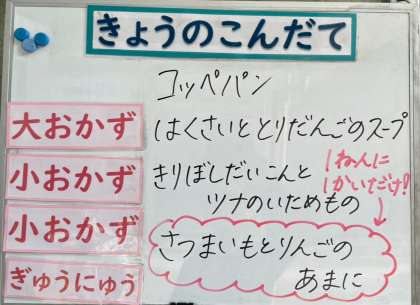 きょうのこんだて
コッペパン
大おかず はくさいととりだんごのスープ
小おかず きりぼしだいこんと
ツナのいためもの
1ねんに
1かいだけ!
小おかず さつまいもとりんごの
あまに
ぎゅうにゅう